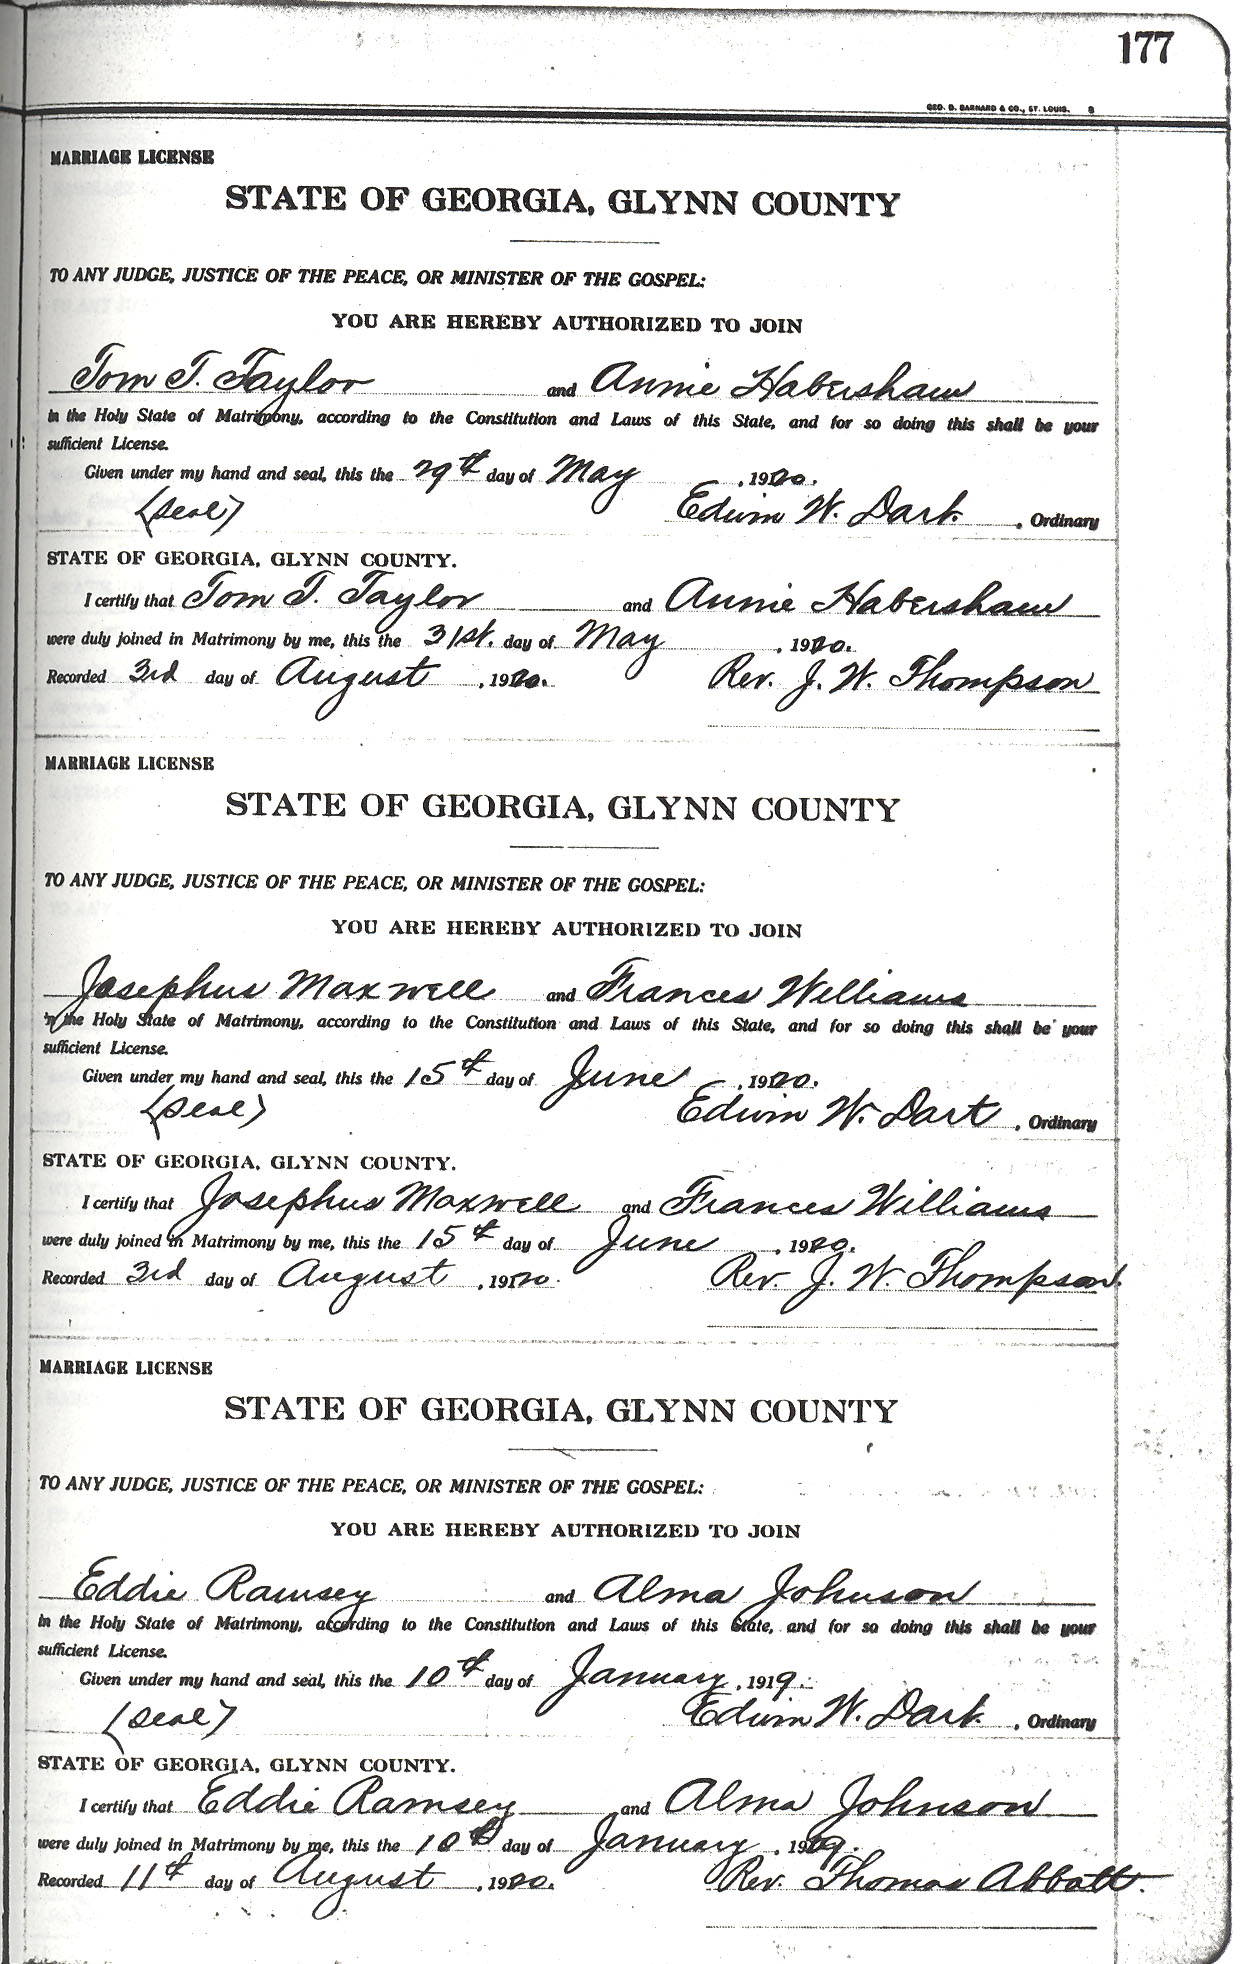 177
GEO. D. BARNARD & CO., ST. LOUIS. 8
MARRIAGE LICENSE
STATE OF GEORGIA, GLYNN COUNTY
TO ANY JUDGE, JUSTICE OF THE PEACE, OR MINISTER OF THE GOSPEL:
YOU ARE HEREBY AUTHORIZED TO JOIN
Tom T. Taylor and Annie Habersham
in the Holy State of Matrimony, according to the Constitution and Laws of this State, and for so doing this shall be your
sufficient License.
Given under my hand and seal, this the 29th day of May , 1920.
(Seal) Edwin W. Dart , Ordinary
STATE OF GEORGIA, GLYNN COUNTY.
I certify that Tom T. Taylor and Annie Habersham
were duly joined in Matrimony by me, this the 31st. day of May , 1920.
Recorded 3rd day of August , 1920. Rev. J. W. Thompson
MARRIAGE LICENSE
STATE OF GEORGIA, GLYNN COUNTY
TO ANY JUDGE, JUSTICE OF THE PEACE, OR MINISTER OF THE GOSPEL:
YOU ARE HEREBY AUTHORIZED TO JOIN
Josephus Maxwell and Frances Williams
in the Holy State of Matrimony, according to the Constitution and Laws of this State, and for so doing this shall be your
sufficient License.
Given under my hand and seal, this the 15th day of June , 1920.
(Seal) Edwin W. Dart , Ordinary
STATE OF GEORGIA, GLYNN COUNTY.
I certify that Josephus Maxwell and Frances Williams
were duly joined in Matrimony by me, this the 15th day of June , 1920.
Recorded 3rd day of August , 1920. Rev. J. W. Thompson.
MARRIAGE LICENSE
STATE OF GEORGIA, GLYNN COUNTY
TO ANY JUDGE, JUSTICE OF THE PEACE, OR MINISTER OF THE GOSPEL:
YOU ARE HEREBY AUTHORIZED TO JOIN
Eddie Ramsey and Alma Johnson
in the Holy State of Matrimony, according to the Constitution and Laws of this State, and for so doing this shall be your
sufficient License.
Given under my hand and seal, this the 10th day of January , 1919.
(Seal) Edwin W. Dart , Ordinary
STATE OF GEORGIA, GLYNN COUNTY.
I certify that Eddie Ramsey and Alma Johnson
were duly joined in Matrimony by me, this the 10th day of January , 1919.
Recorded 11th day of August , 1920. Rev. Thomas Abbott.